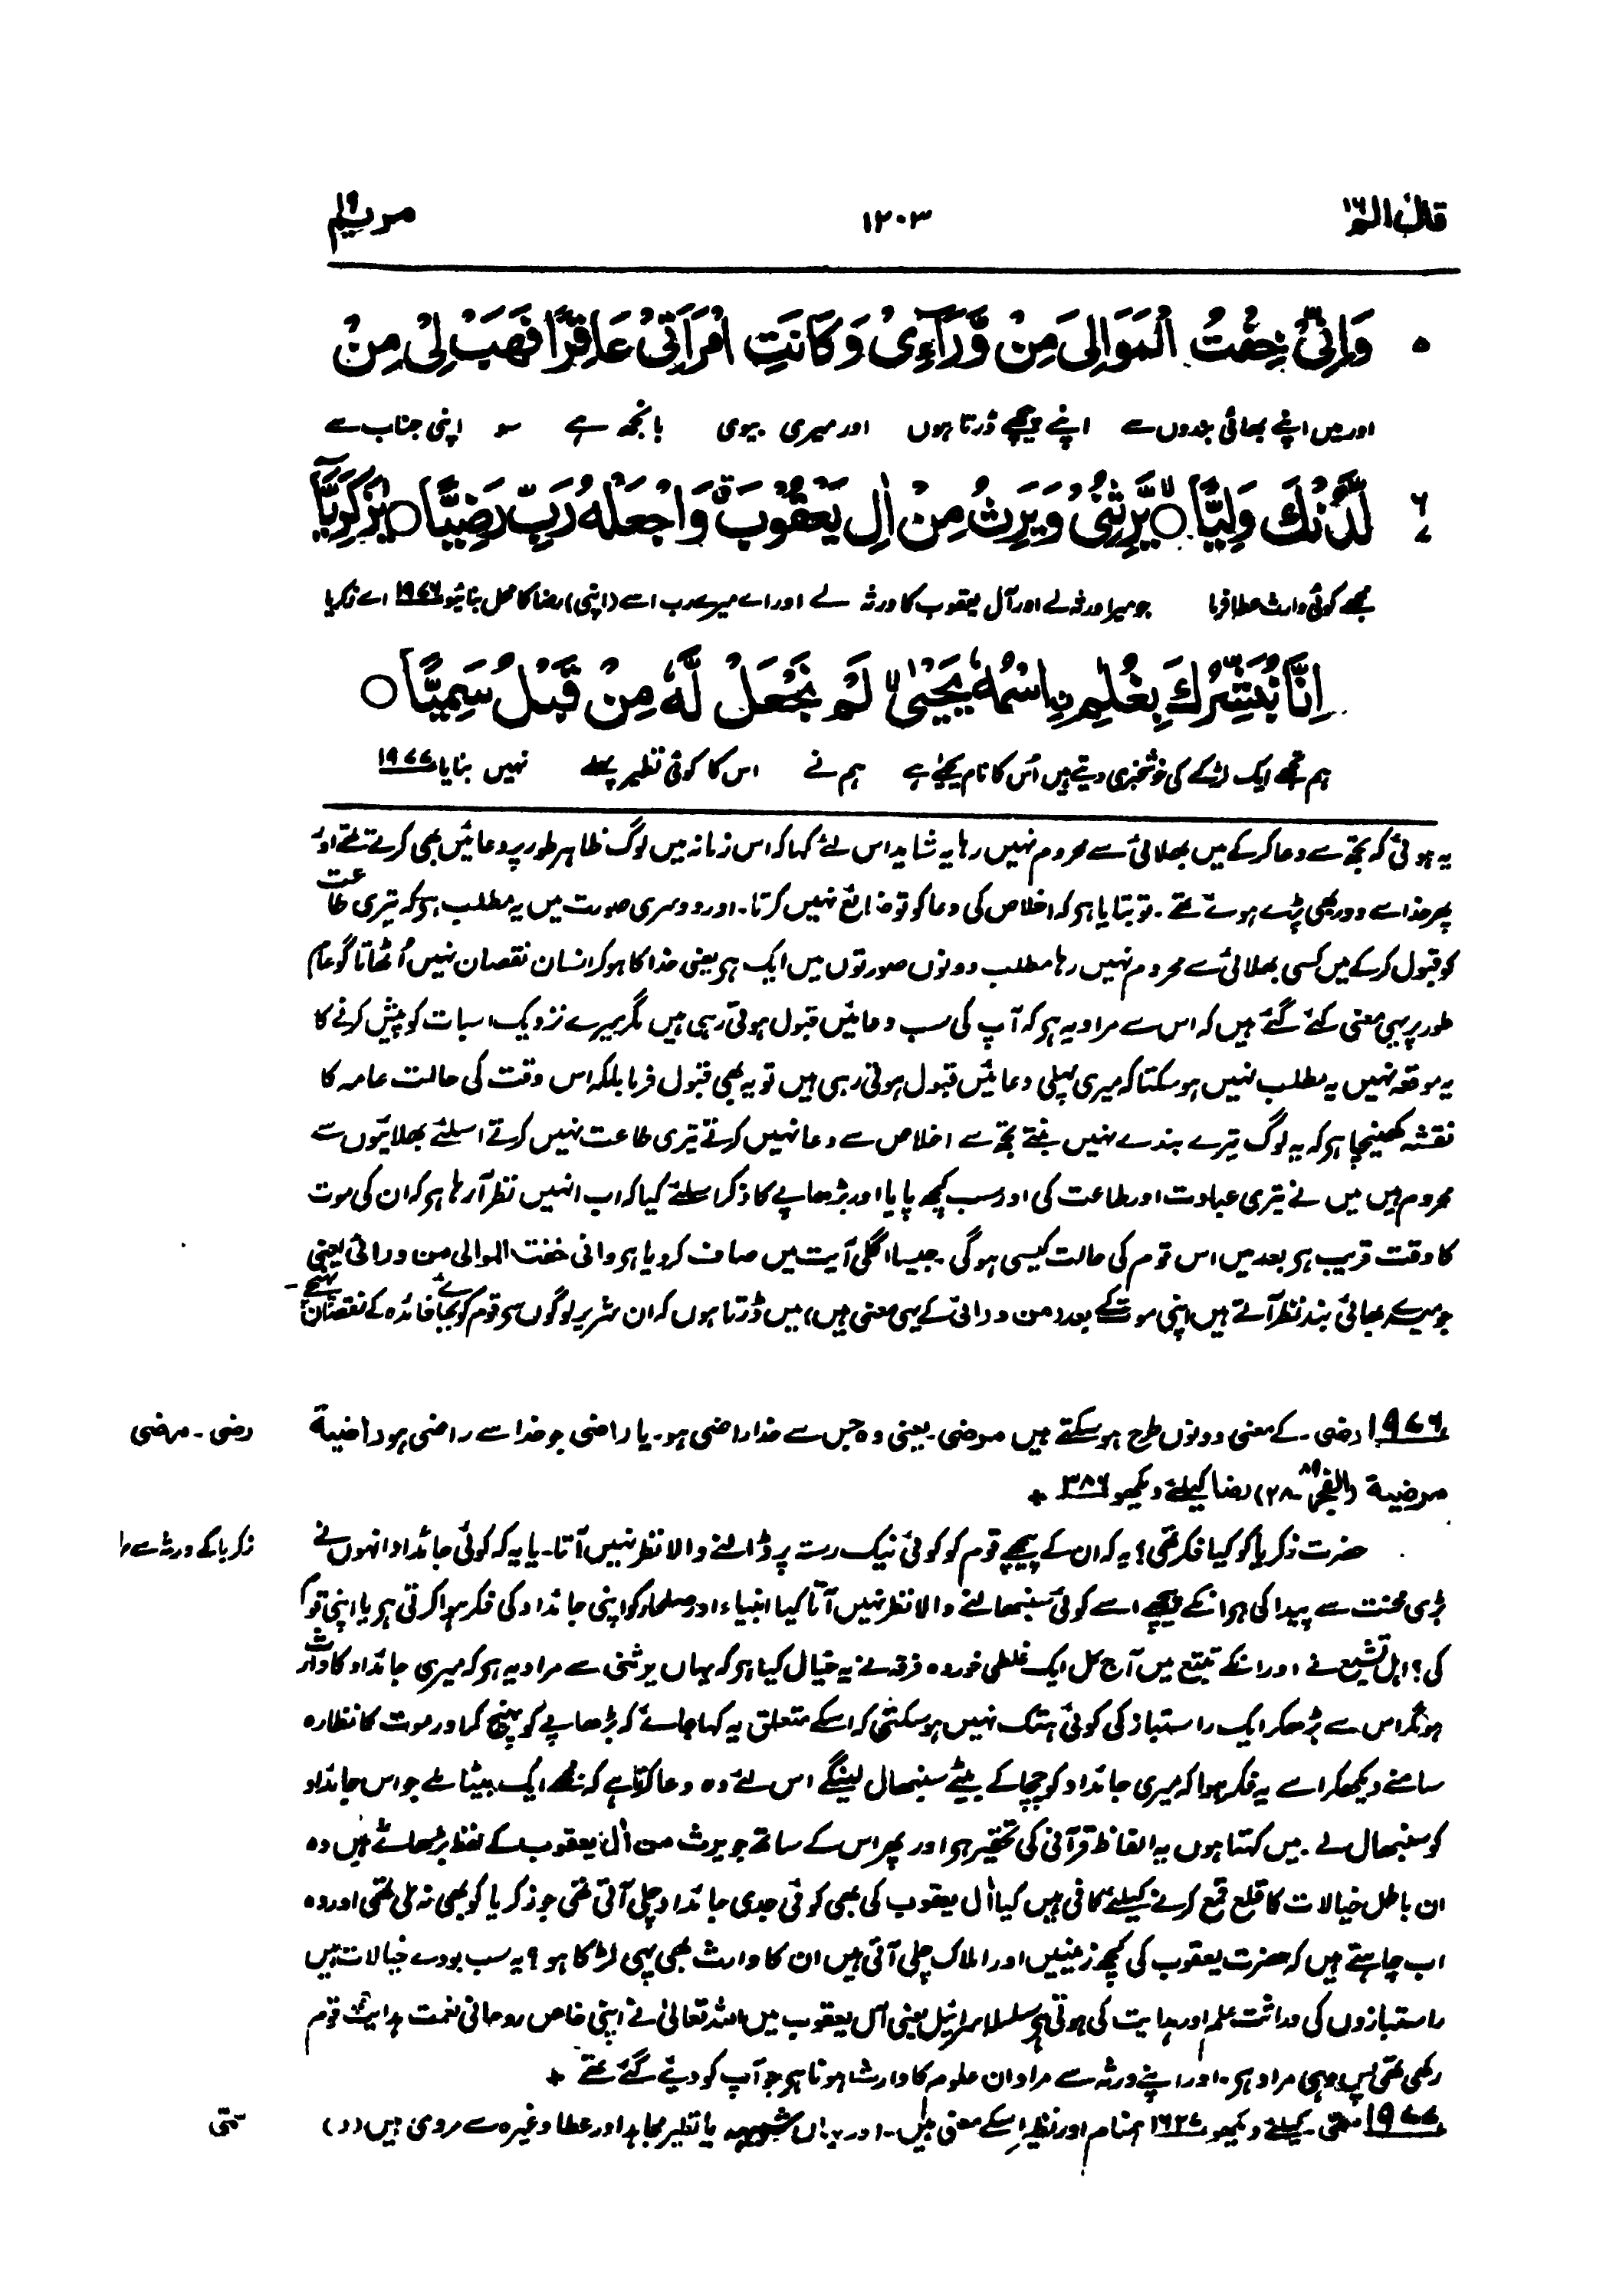 قال الم ١٦ ١٢٠٣ مریم ١٩
٥ وَاِنِّیْ خِفْتُ الْمَوَالِیَ مِنْ وَّرَآءِیْ وَكَانَتِ امْرَاَتِیْ عَاقِرًا فَهَبْ لِیْ مِنْ
اور میں اپنے بھائی بندوں سے اپنے پیچھے ڈرتا ہوں اور میری بیوی بانجھ ہے سو اپنی جناب سے
٦ لَّدُنْكَ وَلِیًّا ○ یَّرِثُنِیْ وَیَرِثُ مِنْ اٰلِ یَعْقُوْبَ ۖ وَاجْعَلْهُ رَبِّ رَضِیًّا ○ یٰزَكَرِیَّآ
مجھے کوئی وارث عطا فرما جو میرا ورثہ لے اور آل یعقوب کا ورثہ لے اور اے میرے رب اسے (اپنی) رضا کا محل بنائیو ١٩٧٦ اے زکریا
اِنَّا نُبَشِّرُكَ بِغُلٰمِ ِۨاسْمُهٗ یَحْیٰی ۙ لَمْ نَجْعَلْ لَّهٗ مِنْ قَبْلُ سَمِیًّا ○
ہم تجھے ایک لڑکے کی خوشخبری دیتے ہیں اُس کا نام یحییٰ ہے ہم نے اس کا کوئی نظیر پہلے نہیں بنایا ١٩٧٧
یہ ہوئی کہ تجھ سے دعا کر کے میں بھلائی سے محروم نہیں رہا یہ شاید اس لئے کہا کہ اس زمانہ میں لوگ ظاہر طور پر دعائیں بھی کرتے تھے اور
پھر خدا سے دور بھی پڑے ہوئے تھے ۔ تو بتایا ہو کہ اخلاص کی دعا کو تو ضائع نہیں کرتا ۔ اور دوسری صورت میں یہ مطلب ہو کہ تیری طاعت
کو قبول کر کے میں کسی بھلائی سے محروم نہیں رہا مطلب دونوں صورتوں میں ایک ہو یعنی خدا کا ہو کر انسان نقصان نہیں اُٹھاتا گو عام
طور پر یہی معنی کئے گئے ہیں کہ اس سے مراد یہ ہو کہ آپ کی سب دعائیں قبول ہوتی رہی ہیں مگر میرے نزدیک اسبات کو پیش کرنے کا
یہ موقعہ نہیں یہ مطلب نہیں ہوسکتا کہ میری پہلی دعائیں قبول ہوتی رہی ہیں تو یہ بھی قبول فرما بلکہ اس وقت کی حالت عامہ کا
نقشہ کھینچا ہو کہ یہ لوگ تیرے بندے نہیں بنتے تجھ سے اخلاص سے دعا نہیں کرتے تیری طاعت نہیں کرتے اسلئے بھلائیوں سے
محروم ہیں میں نے تیری عبادت اور طاعت کی اور سب کچھ پایا اور بڑھاپے کا ذکر اسلئے کیا کہ اب انہیں نظر آرہا ہو کہ ان کی موت
کا وقت قریب ہو بعد میں اس قوم کی حالت کیسی ہوگی ۔ جیسا اگلی آیت میں صاف کر دیا ہو وانی خفت الموالی من ورائی یعنی
جو میرے بھائی بند نظر آتے ہیں اپنی موت کے بعد (من ورائی کے یہی معنی ہیں) میں ڈرتا ہوں کہ ان شریر لوگوں سو قوم کو بجائے فائدہ کے نقصان پہنچے ۔
١٩٧٦ رضی ۔ کے معنی دونوں طرح ہو سکتے ہیں مرضی ۔ یعنی وہ جس سے خدا راضی ہو ۔ یا راضی جو خدا سے راضی ہو (راضیة رضی ۔ مرضی
مرضیة (الفجر ٨٩ ۔ ٢٨) رضا کیلئے دیکھو ٣٨٦ +
حضرت زکریا کو کیا فکر تھی؟ یہ کہ ان کے پیچھے قوم کو کوئی نیک رستہ پر ڈالنے والا نظر نہیں آتا ۔ یا یہ کہ کوئی جائداد انہوں نے زکریا کے ورثہ سے
بڑی محنت سے پیدا کی ہو انکے پیچھے اسے کوئی سنبھالنے والا نظر نہیں آتا کیا انبیاء اور صلحاء کو اپنی جائداد کی فکر ہوا کرتی ہو یا اپنی قوم
کی؟ اہل تشیع نے اور انکے تتبع میں آج کل ایک غلطی خوردہ فرقہ نے یہ خیال کیا ہو کہ یہاں یرثنی سے مراد یہ ہو کہ میری جائداد کا وارث
ہو مگر اس سے بڑھکر ایک راستباز کی کوئی ہتک نہیں ہوسکتی کہ اسکے متعلق یہ کہا جائے کہ بڑھاپے کو پہنچ کر اور موت کا نظارہ
سامنے دیکھکر اسے یہ فکر ہوا کہ میری جائداد کو چچا کے بیٹے سنبھال لینگے اس لئے وہ دعا کرتا ہے کہ مجھے ایک بیٹا ملے جو اس جائداد
کو سنبھال لے ۔ میں کہتا ہوں یہ الفاظ قرآنی کی تحقیر ہو اور پھر اس کے ساتھ جو یرث من اٰل یعقوب کے لفظ بڑھائے ہیں وہ
ان باطل خیالات کا قلع قمع کرنے کیلئے کافی ہیں کیا اٰل یعقوب کی بھی کوئی جدی جائداد چلی آتی تھی جو زکریا کو بھی نہ ملی تھی اور وہ
اب چاہتے ہیں کہ حضرت یعقوب کی کچھ زمینیں اور املاک چلی آتی ہیں ان کا وارث بھی یہی لڑکا ہو؟ یہ سب بودے خیالات ہیں
راستبازوں کی وراثت علم اور ہدایت کی ہوتی ہو سلسلہ اسرائیل یعنی آل یعقوب میں اللہ تعالیٰ نے اپنی خاص روحانی نعمت ہدایت قوم
رکھی تھی پس وہی مراد ہو ۔ اور اپنے ورثہ سے مراد ان علوم کا وارث ہونا ہو جو آپ کو دیئے گئے تھے +
١٩٧٧ سمّی ۔ کیلئے دیکھو ١٦٢٧ ہمنام اور نظیر اسکے معنی ہیں ۔ اور یہاں شبیہ یا نظیر مجاہد اور عطا وغیرہ سے مروی ہیں (د) سمّی